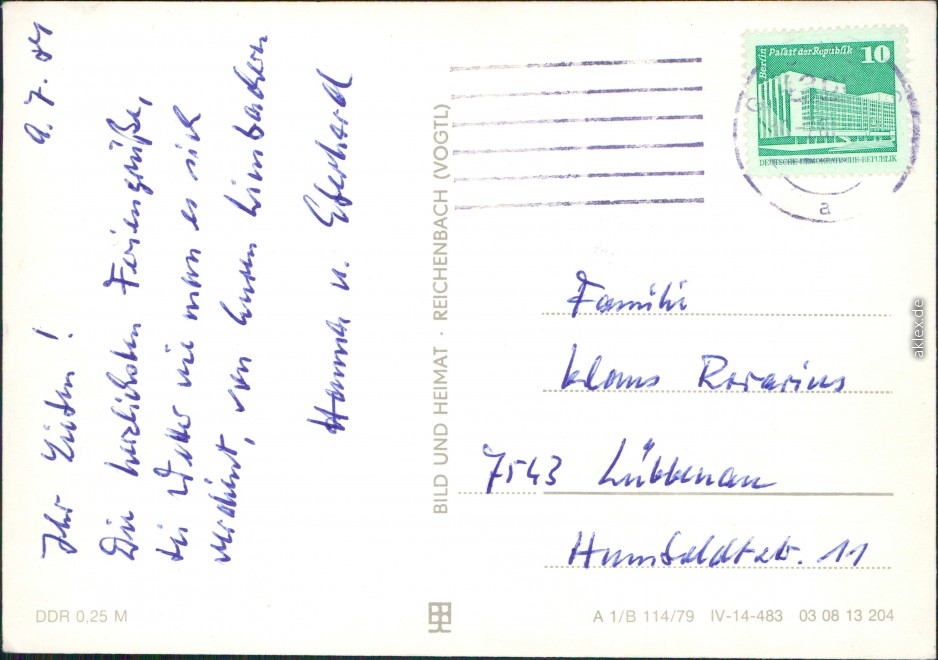 9. 7. 84
Ihr Lieben!
Die herzlichsten Feriengrüße,
bei Wetter wie man es sich
verdient, von Euren
Hanna u. Eberhard
BILD UND HEIMAT · REICHENBACH (VOGTL)
Berlin Palast der Republik 10
DEUTSCHE DEMOKRATISCHE REPUBLIK
a
Familie
Klaus Rosarius
7543 Lübbenau
Humboldtstr. 11
DDR 0,25 M
A 1/B 114/79 IV-14-483 03 08 13 204
aklex.de